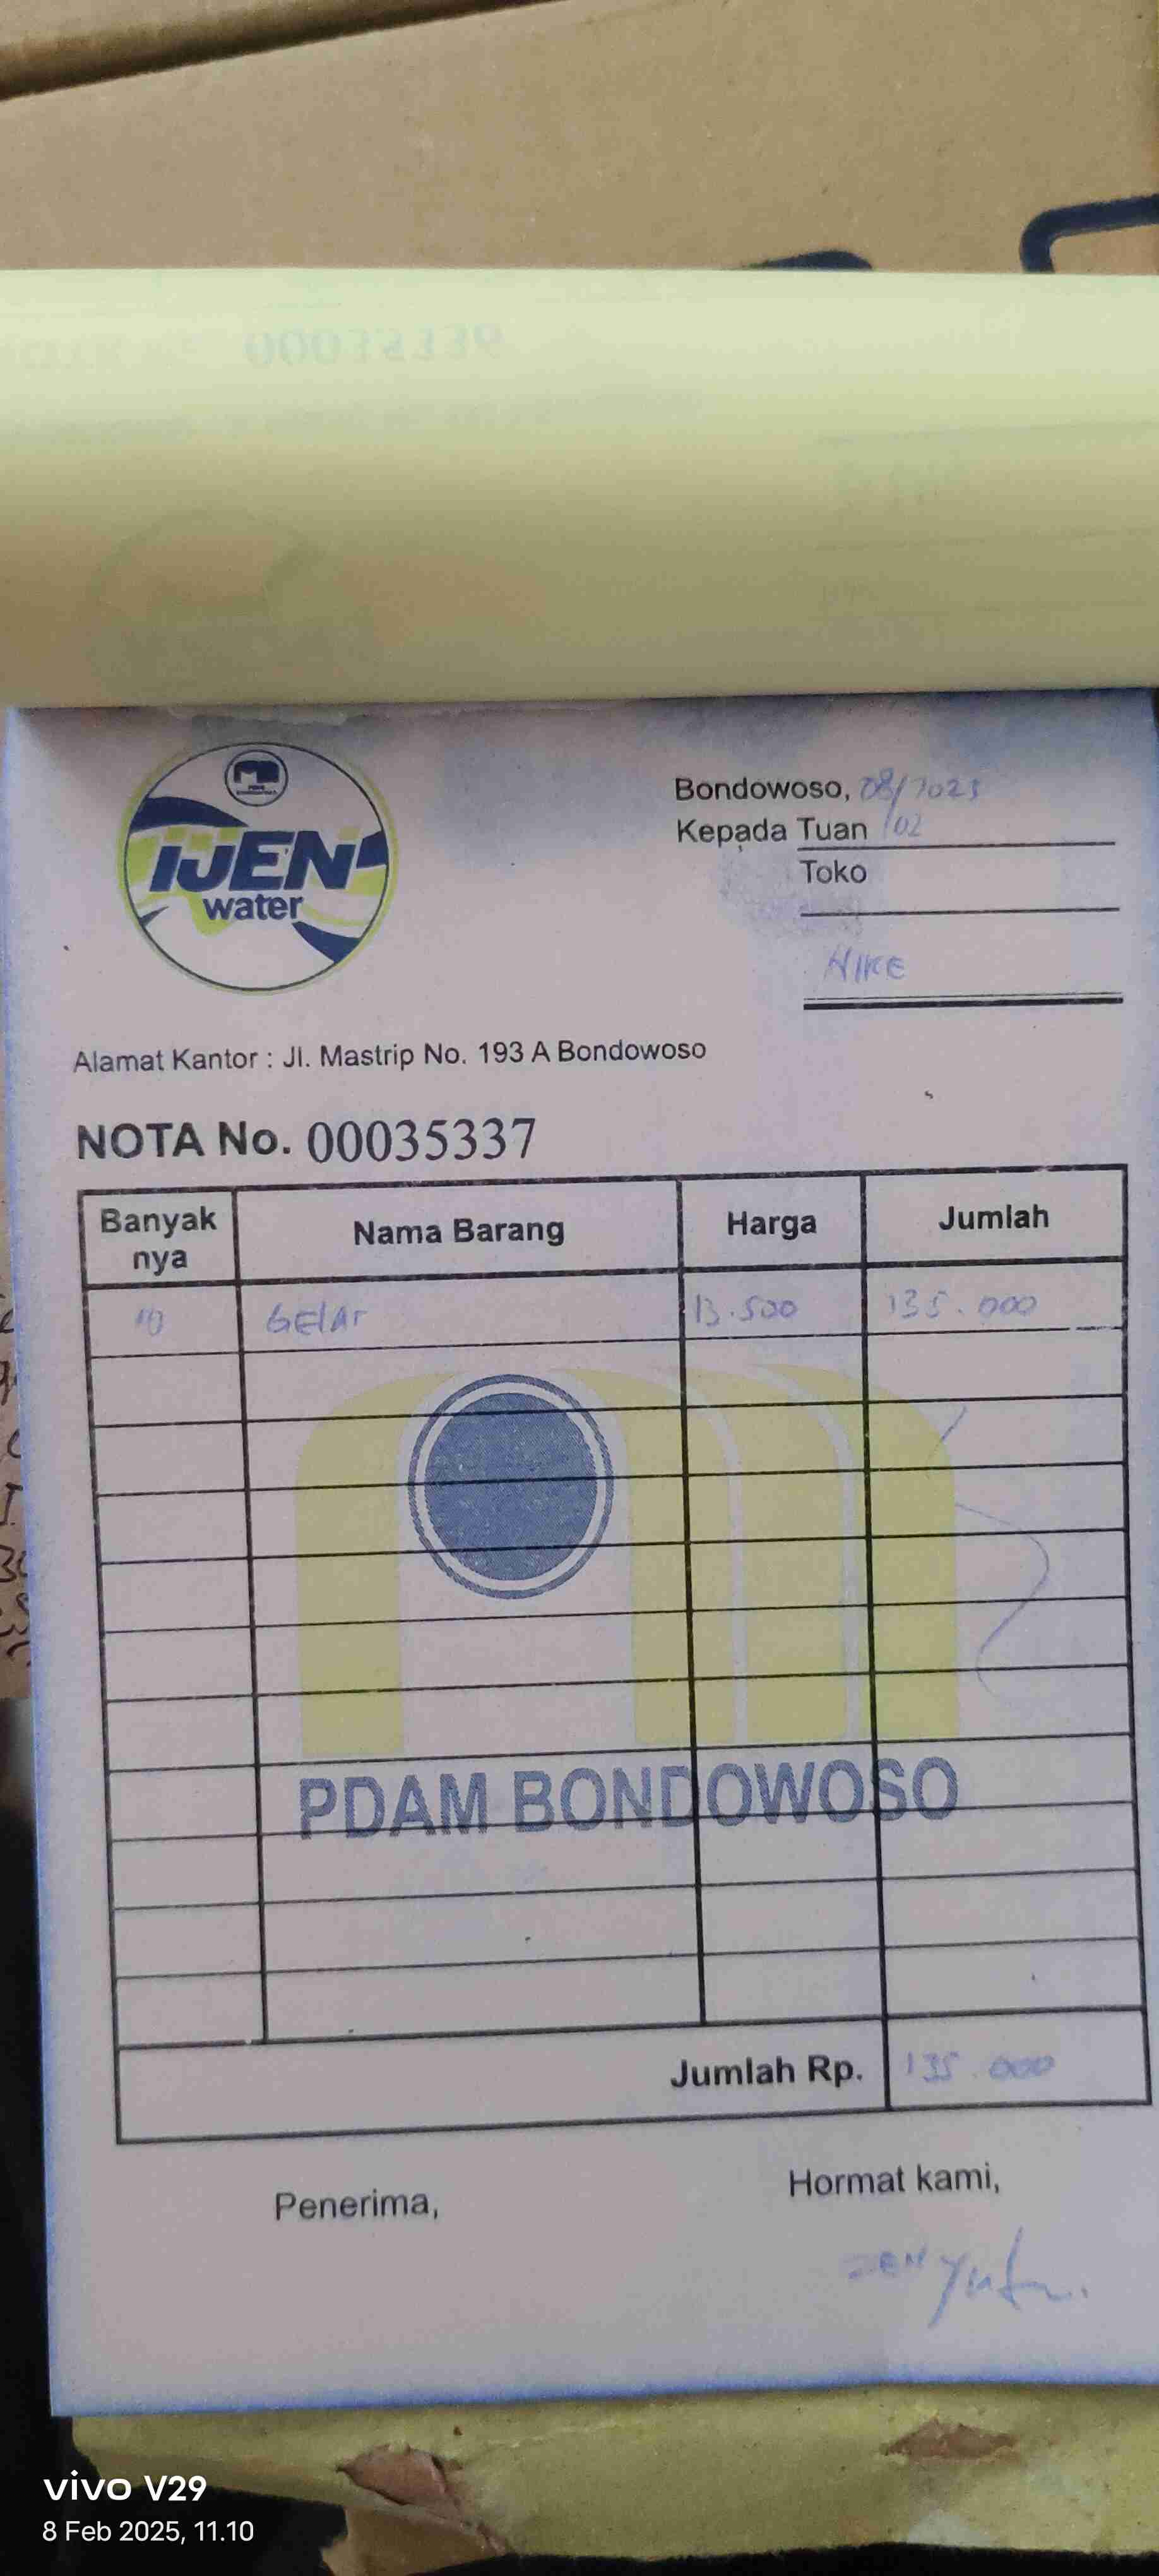 00035336
IJEN
water
Bondowoso, 08/2025
Kepada Tuan /02
Toko
NIKE
Alamat Kantor : Jl. Mastrip No. 193 A Bondowoso
NOTA No. 00035337
Banyak nya Nama Barang Harga Jumlah
10 GElAr 13.500 135.000
PDAM BONDOWOSO
Jumlah Rp. 135.000
Penerima, Hormat kami,
vivo V29
8 Feb 2025, 11.10